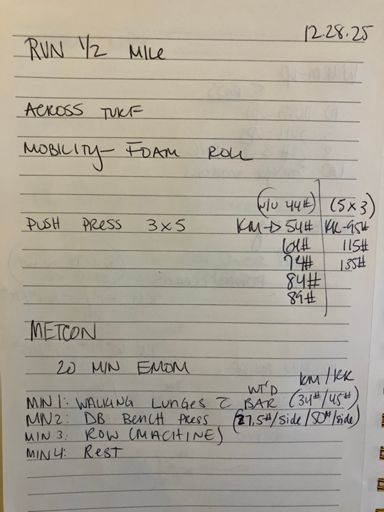 12.28.25
RUN 1/2 MILE
ACROSS TURF
MOBILITY - FOAM ROLL
(W/U 44#) (5x3)
PUSH PRESS 3x5 KM→ 54# KK-95#
64# 115#
74# 135#
84#
89#
METCON
20 MIN EMOM
KM/KK
WT'D
MIN 1: WALKING LUNGES c̄ BAR (34#/45#)
MIN 2: DB BENCH PRESS (27.5#/side/50#/side)
MIN 3: ROW (MACHINE)
MIN 4: REST